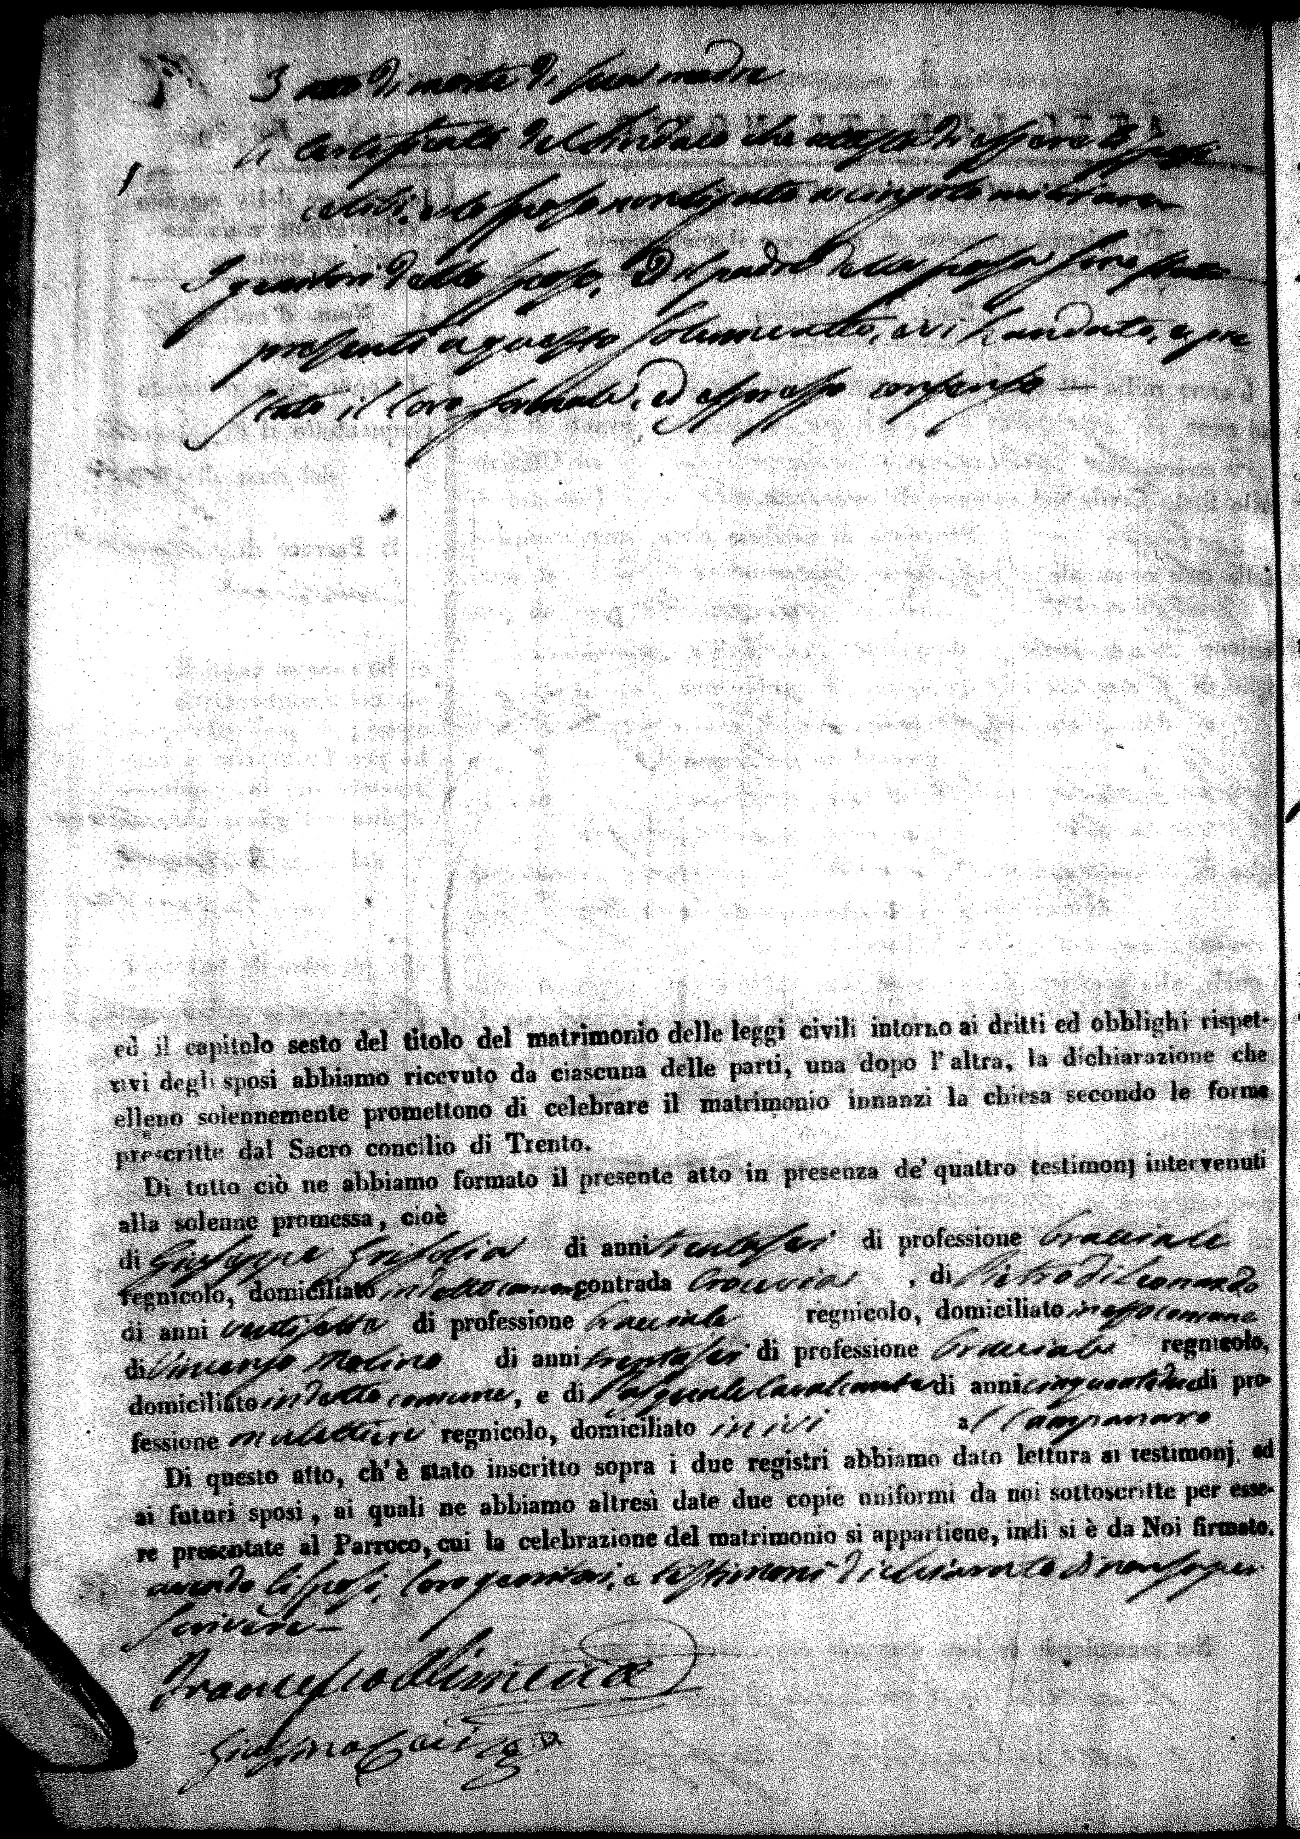 3 atto di morte di sua madre
Certificato del Sindaco che attesta di essere li sposi
celibi, e lo sposo non ligato a cingolo militare
I genitori dello sposo, ed il padre della sposa sono stati
presenti a questo solenne atto, e vi hanno dato, e pre
stato il loro formale, ed espresso consenso —
ed il capitolo sesto del titolo del matrimonio delle leggi civili intorno ai dritti ed obblighi rispet-
tivi degli sposi abbiamo ricevuto da ciascuna delle parti, una dopo l'altra, la dichiarazione che
elleno solennemente promettono di celebrare il matrimonio innanzi la chiesa secondo le forme
prescritte dal Sacro concilio di Trento.
Di tutto ciò ne abbiamo formato il presente atto in presenza de' quattro testimonj intervenuti
alla solenne promessa, cioè
di Giuseppe Grisolia di anni trentasei di professione bracciale
regnicolo, domiciliato in detto comune contrada , di Pietro di Leonardo
di anni ventisette di professione bracciale regnicolo, domiciliato in esso comune
di Vincenzo Molino di anni trentasei di professione bracciale regnicolo,
domiciliato in detto comune, e di Pasquale Cavalcante di anni cinquantadue di pro-
fessione regnicolo, domiciliato in ivi a Campanaro
Di questo atto, ch'è stato inscritto sopra i due registri abbiamo dato lettura ai testimonj, ed
ai futuri sposi, ai quali ne abbiamo altresì date due copie uniformi da noi sottoscritte per esse-
re presentate al Parroco, cui la celebrazione del matrimonio si appartiene, indi si è da Noi firmato,
avendo li sposi, loro genitori, e testimoni dichiarato di non saper
scrivere —
Francesco